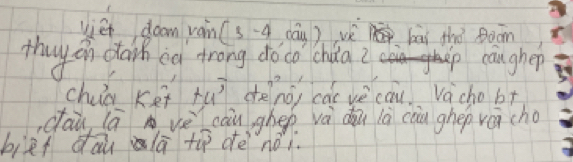 viết đoạn văn (3-4 câu) về bài thơ Đoàn
thuyền đánh cá trong đó có chứa 2 câu ghép
chứa kết từ để nối các vế câu. Và cho bt
đâu là vế câu ghép và đâu là câu ghép rồi cho
biết đâu là từ để nối.